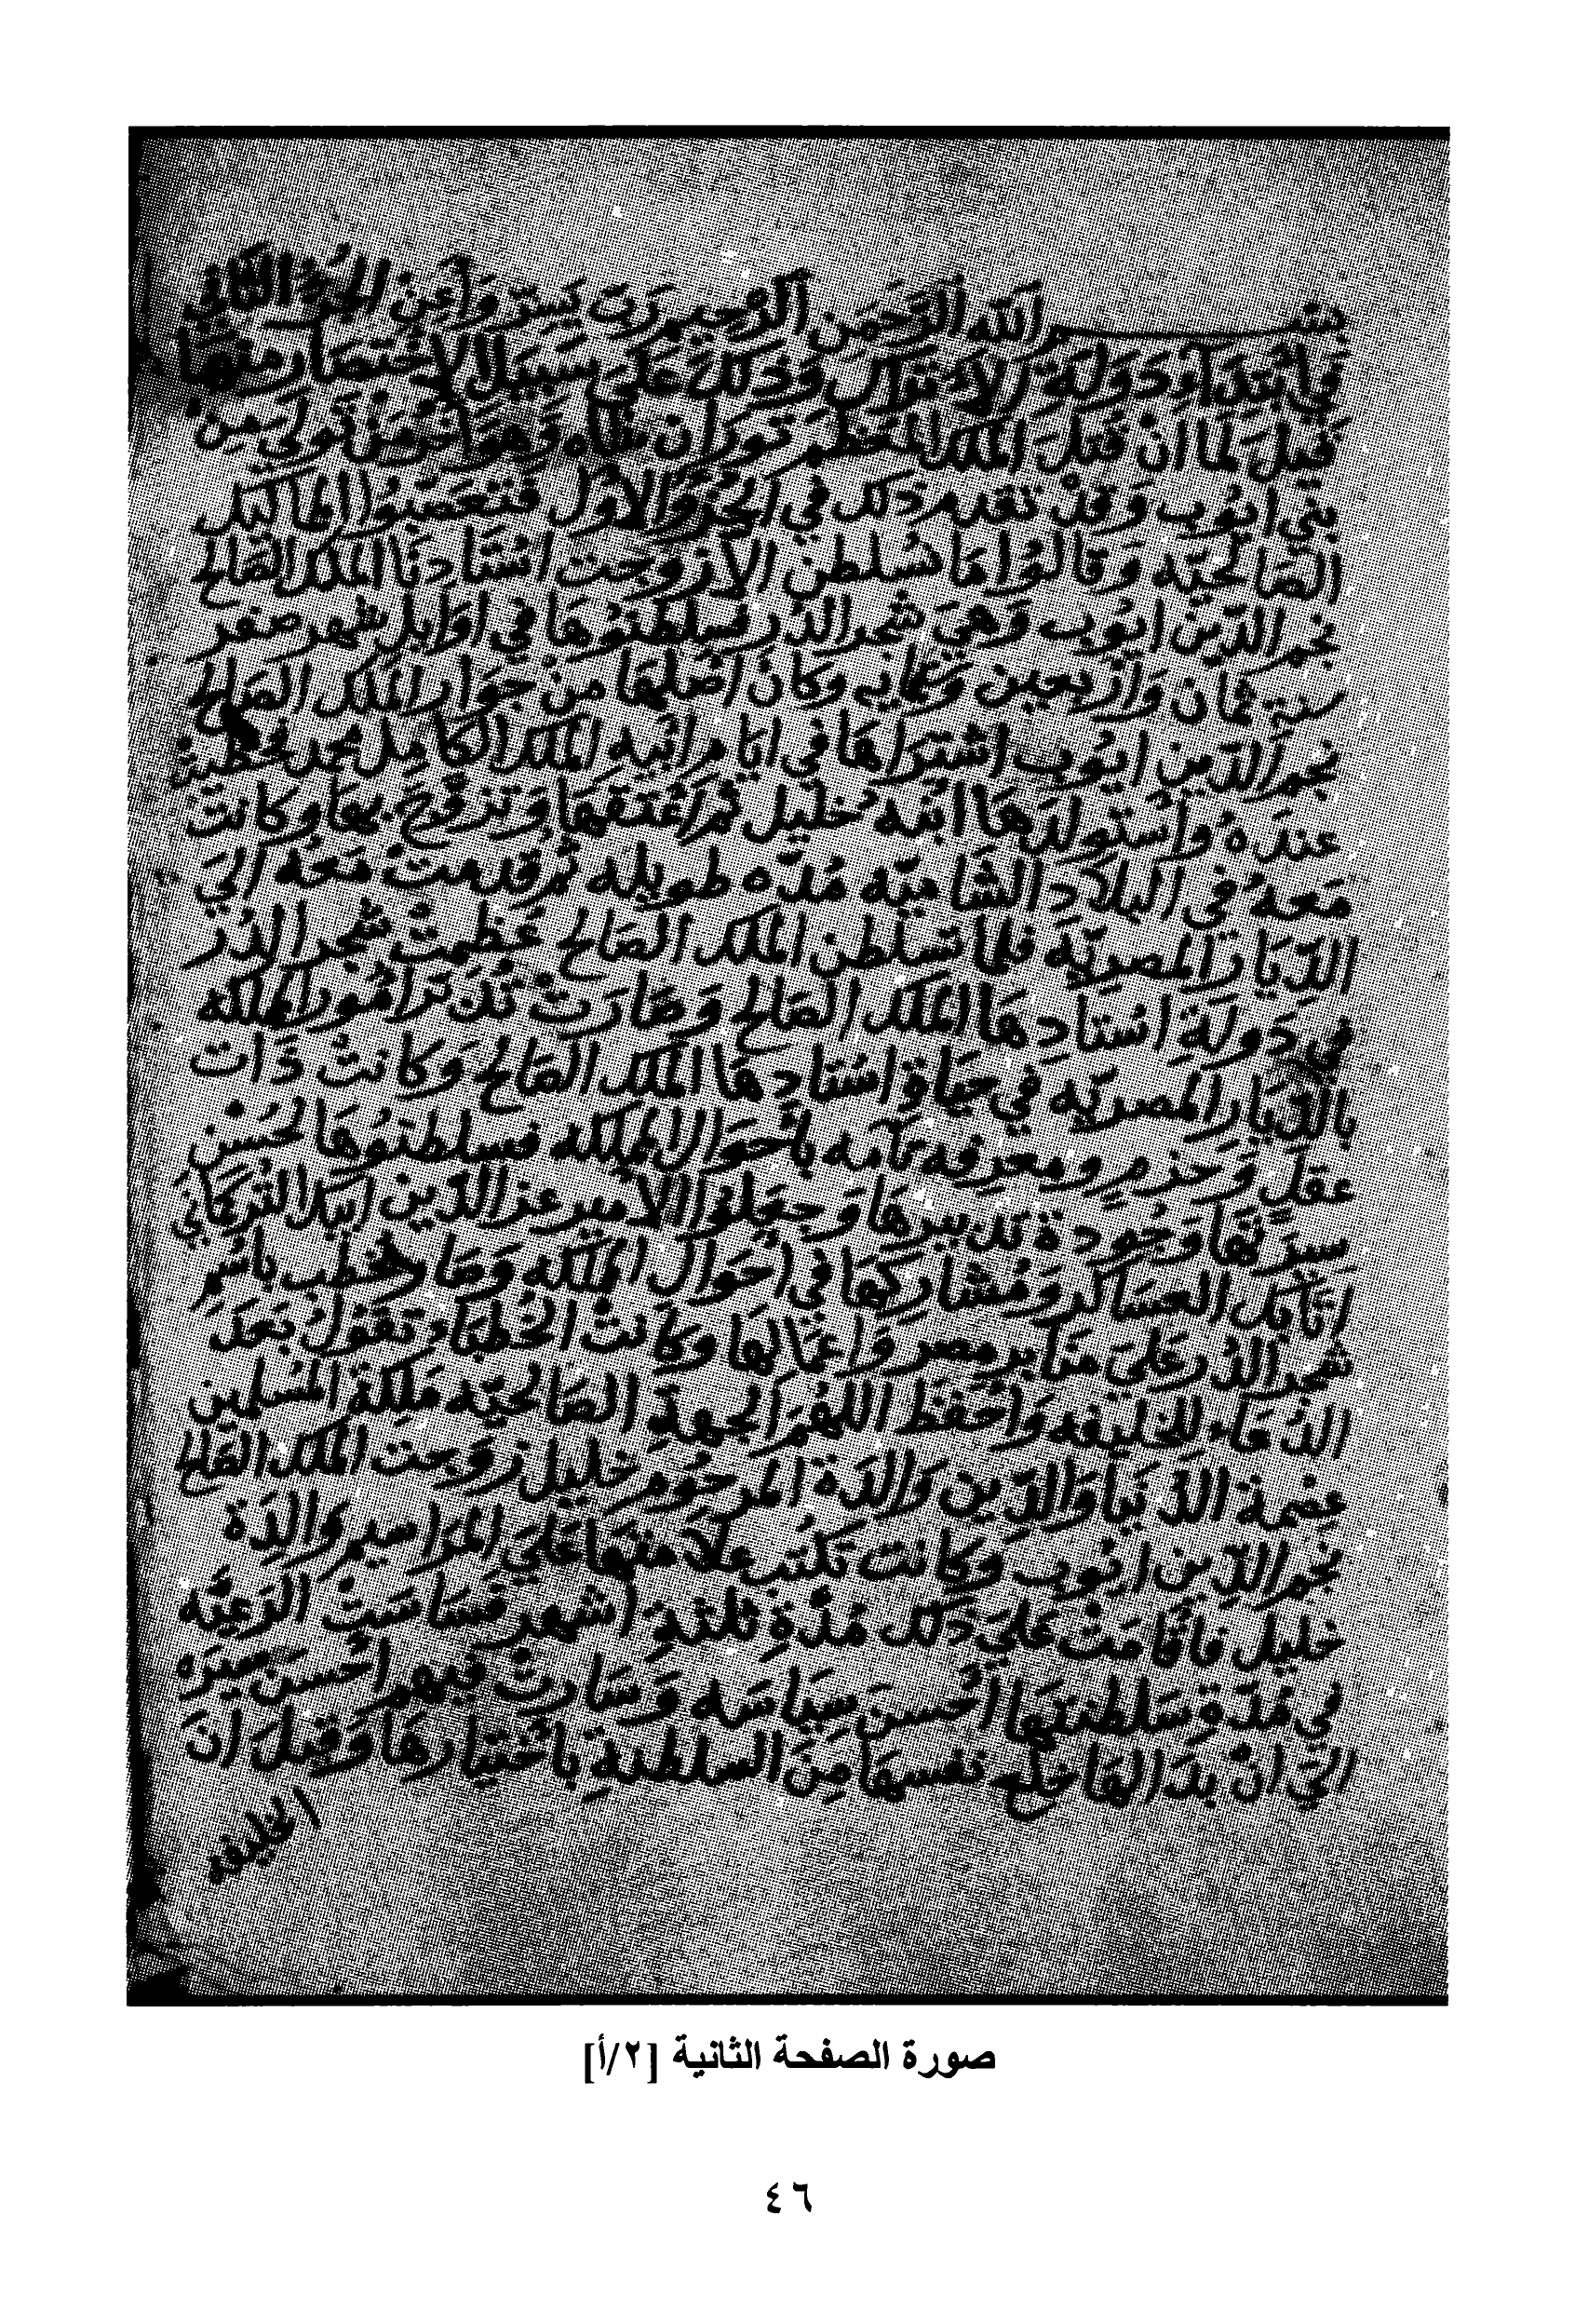 بسم الله الرحمن الرحيم رب يسر واعن الجزء الثاني
في ابتداء دولة الاتراك وذلك على سبيل الاختصار منها
قيل لما ان قتل الملك المعظم توران شاه وهو اخر من تولي من
بني ايوب وقد تقدم ذكر ذلك في الجزو الاول فتعصبوا المماليك
الصالحيه وقالوا ما نسلطن الا زوجت استادنا الملك الصالح
نجم الدين ايوب وهي شجر الدر فسلطنوها في اوايل شهر صفر
سنة ثمان واربعين وستمايه وكان اصلها من جوار الملك الصالح
نجم الدين ايوب اشتراها في ايام ابيه الملك الكامل محمد فحظيت
عنده واستولدها ابنه خليل ثم اعتقها وتزوج بها وكانت
معه في البلاد الشاميه مده طويله ثم قدمت معه الي
الديار المصرية فلما تسلطن الملك الصالح عظمت شجر الدر
في دولة استادها الملك الصالح وصارت تدبر امور المملكه
بالديار المصريه في حياة استادها الملك الصالح وكانت ذات
عقل وحزم ومعرفه تامه باحوال المملكه فسلطنوها لحسن
سيرتها وجودة تدبيرها وجعلوا الامير عز الدين ايبك التركماني
اتابك العساكر ومشاركها في احوال المملكه وصار يخطب باسم
شجر الدر علي منابر مصر واعمالها وكانت الخطباء تقول بعد
الدعاء للخليفه واحفظ اللهم الجهة الصالحيه ملكة المسلمين
عصمة الدنيا والدين والدة المرحوم خليل زوجت الملك الصالح
نجم الدين ايوب وكانت تكتب علامتها علي المراسيم والدة
خليل فاقامت علي ذلك مدة ثلثة اشهر فساست الرعيه
في مدة سلطنتها احسن سياسه وسارت فيهم احسن سيره
الي ان بدا لها خلع نفسها من السلطنة باختيارها وقيل ان
الخليفه
صورة الصفحة الثانية [٢/أ]
٤٦